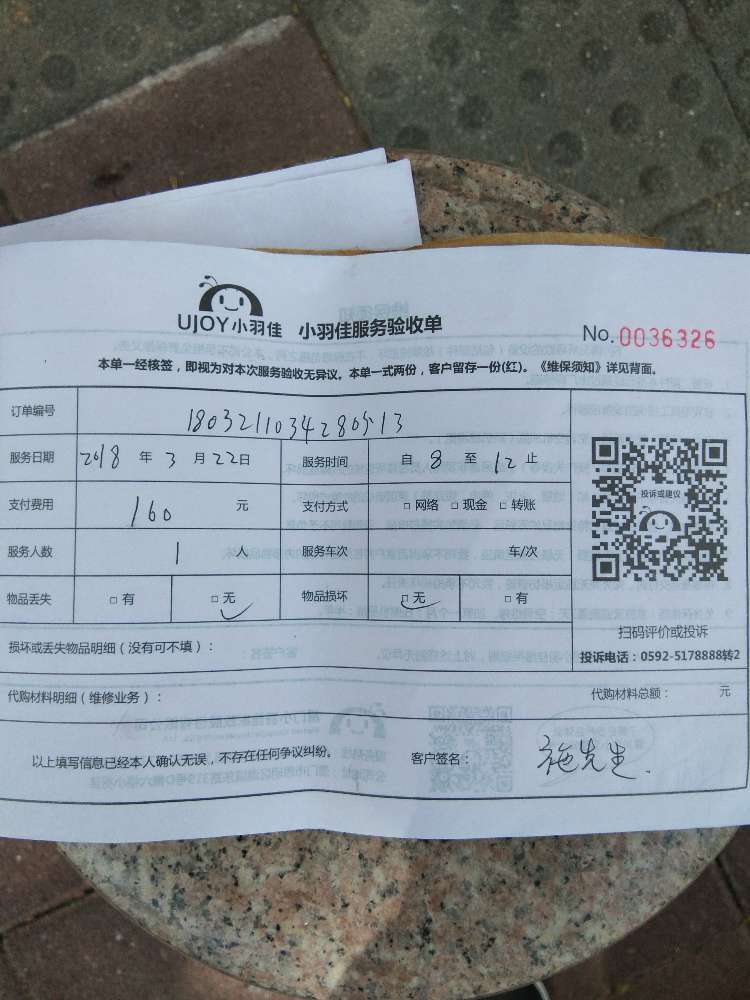 UJOY小羽佳 小羽佳服务验收单 No.0036326
本单一经核签，即视为对本次服务验收无异议。本单一式两份，客户留存一份(红)。《维保须知》详见背面。
订单编号
服务日期 2018 年 3 月 22日 服务时间 自 8 至 12 止
支付费用 160 元 支付方式 □ 网络 □ 现金 □ 转账
投诉或建议
服务人数 1 人 服务车次 车/次
物品丢失 □ 有 □ 无 物品损坏 □ 无 □ 有
扫码评价或投诉
损坏或丢失物品明细（没有可不填）：
投诉电话：0592-5178888转2
代购材料明细（维修业务）： 代购材料总额： 元
以上填写信息已经本人确认无误，不存在任何争议纠纷。 客户签名： 施先生.